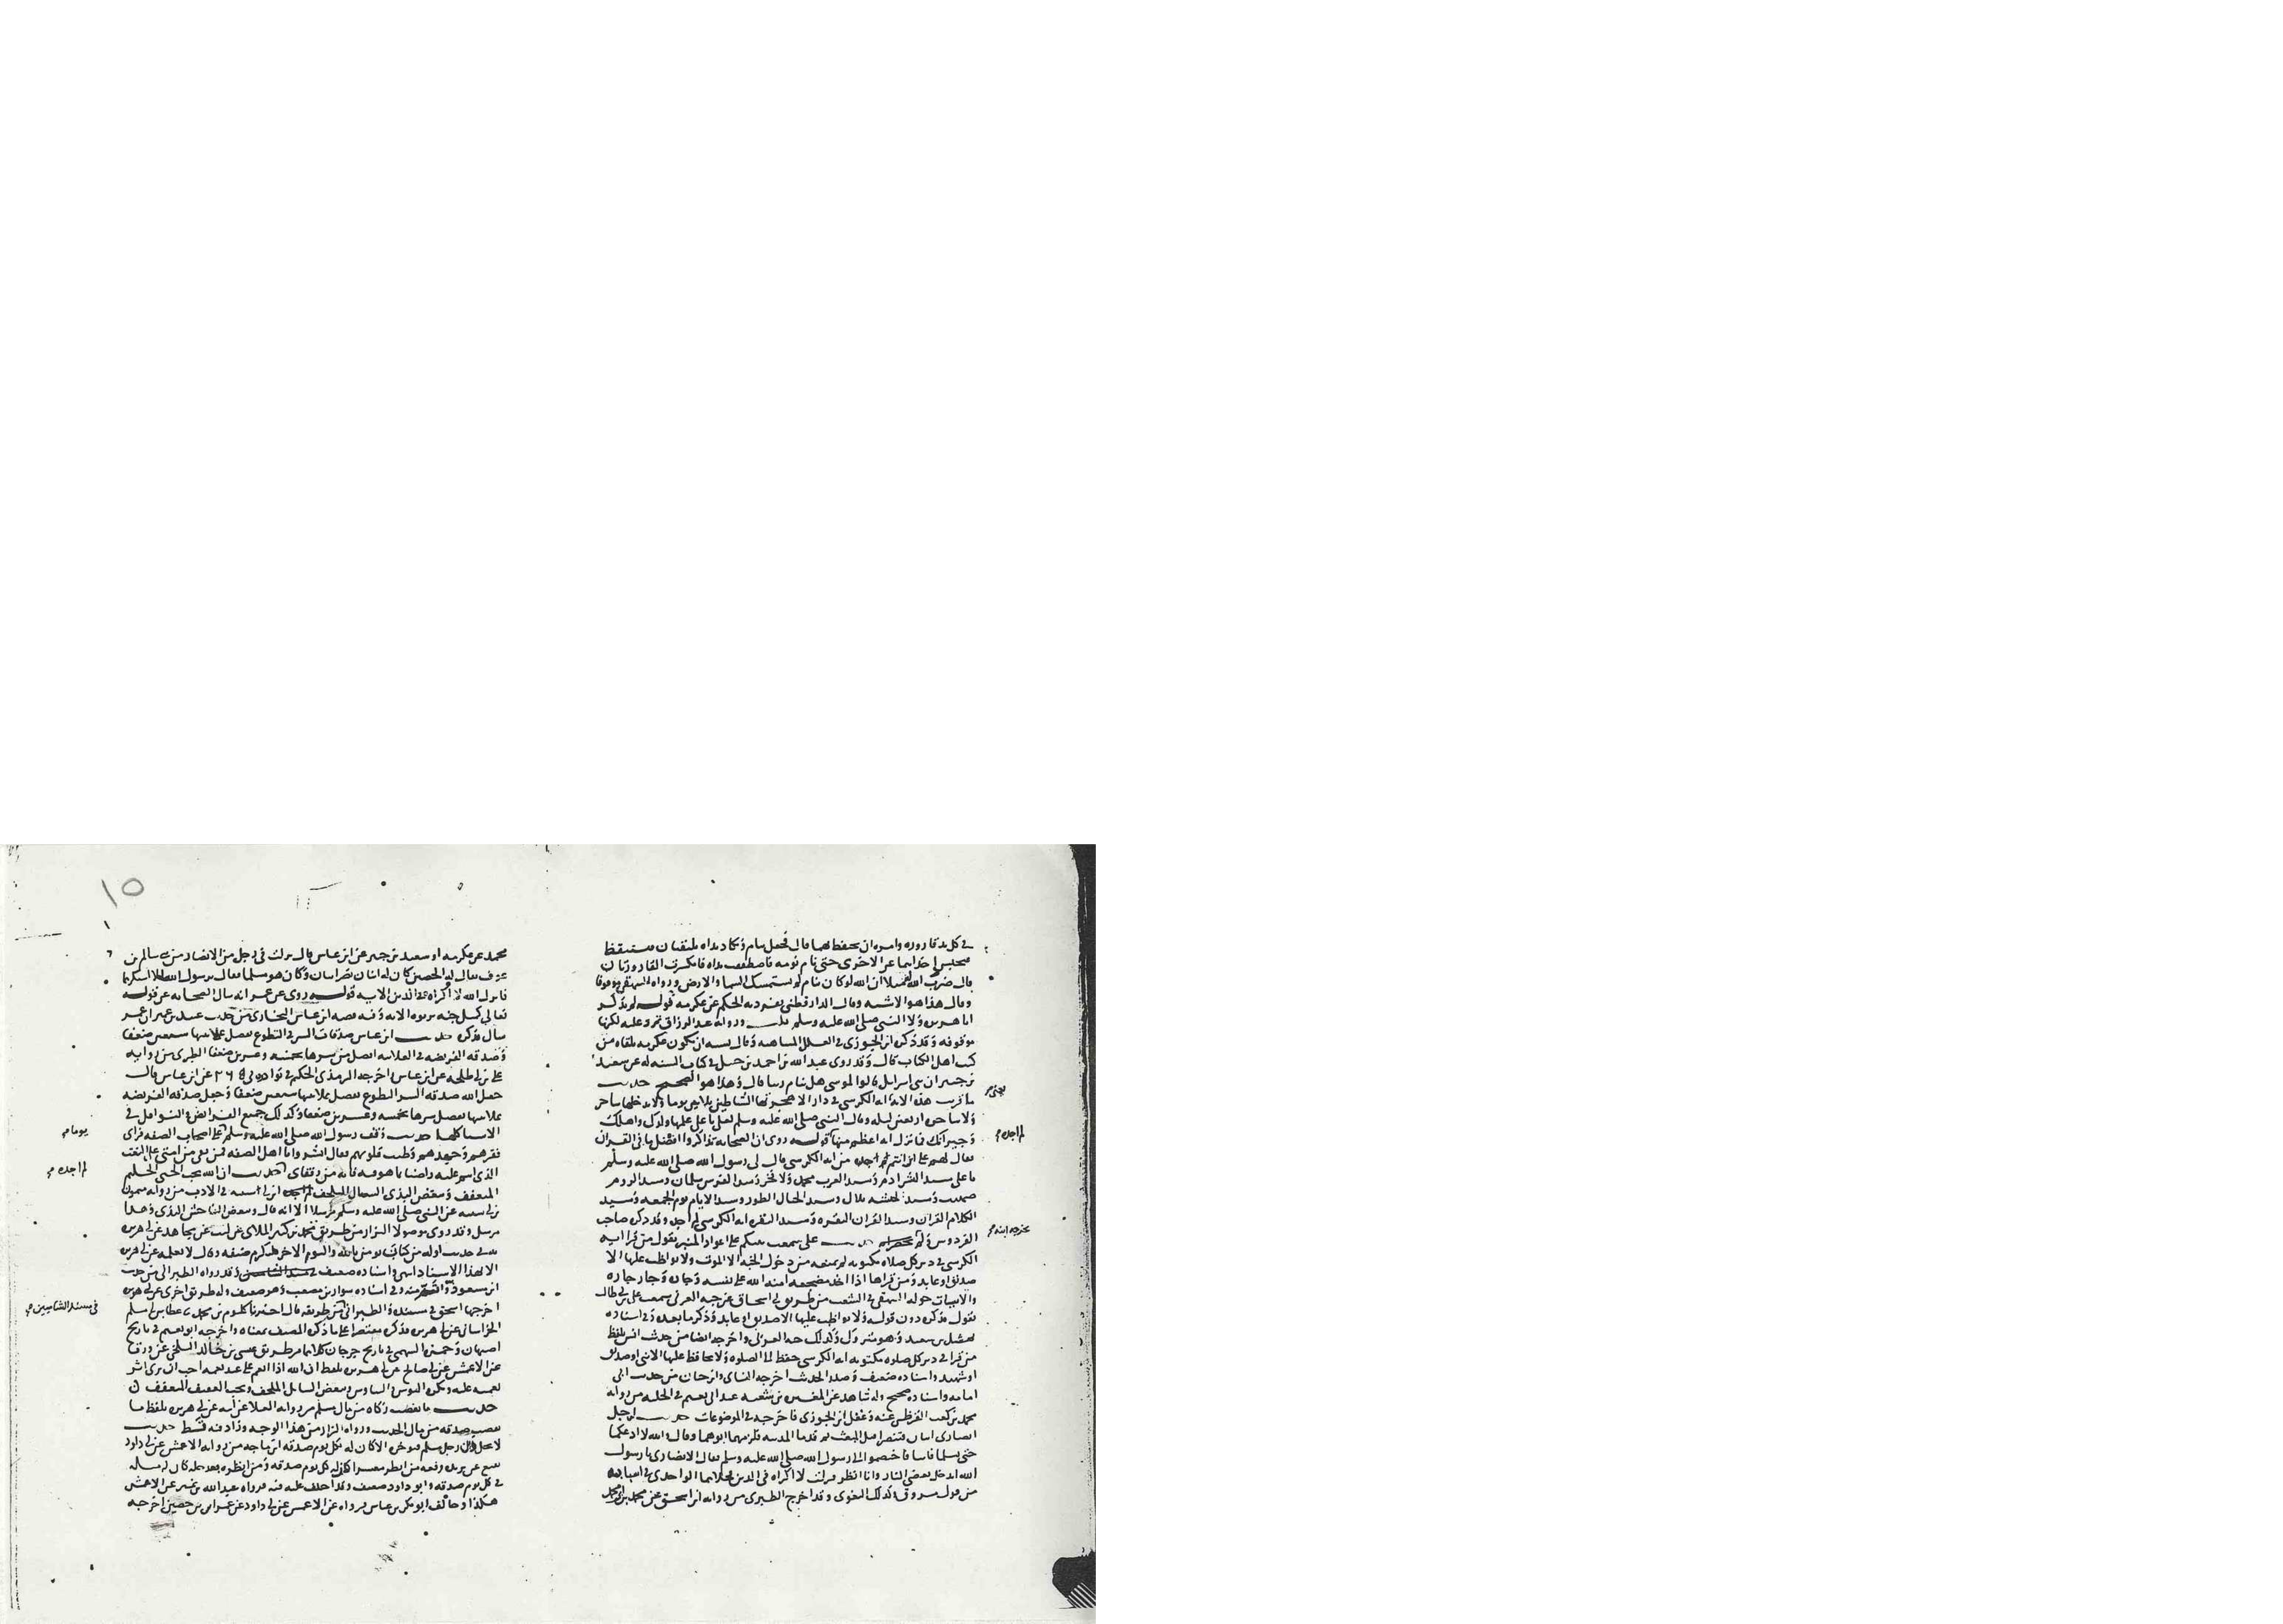 في كل يد قارورة وامره ان يحفظهما قال فجعل ينام وتكاد يداه يلتقيان فيستيقظ
فيحبس احداهما عن الاخرى حتى نام نومه فاصطفقت يداه فانكسرت القارورتان
قال ضرب الله مثلا ان الله لو كان ينام لم يستمسك السما والارض ورواه البيهقي موقوفا
وقال هذا هو الاشبه وقال الدارقطني تفرد به الحكم عن عكرمه قوله لم يذكر
ابا هريره ولا النبي صلى الله عليه وسلم قلت ورواية عبد الرزاق ترد عليه لكنها
موقوفه وقد ذكره ابن الجوزي في العلل المتناهيه وقال يشبه ان يكون عكرمه تلقاه من
كتب اهل الكتاب قال وقد روى عبد الله بن احمد بن حنبل في كتاب السنه له عن سعيد
بن جبير ان بني اسرايل قالوا لموسى هل ينام ربنا قال وهذا هو الصحيح حديث
ما قريت هذه الايه ايه الكرسي في دار الا هجرتها الشياطين ثلاثين يوما ولا يدخلها ساحر
ولا ساحره اربعين ليله وقال النبي صلى الله عليه وسلم لعلي يا علي علمها ولدك واهلك
وجيرانك فما نزل ايه اعظم منها قوله روى ان الصحابه تذاكروا افضل ما في القران
فقال لهم علي اين انتم من ايه الكرسي قال لي رسول الله صلى الله عليه وسلم
يا علي سيد البشر ادم وسيد العرب محمد ولا فخر وسيد الفرس سلمان وسيد الروم
صهيب وسيد الحبشه بلال وسيد الجبال الطور وسيد الايام يوم الجمعه وسيد
الكلام القران وسيد القران البقره وسيد البقره ايه الكرسي لم اجده وقد ذكره صاحب
الفردوس ولم يخرجه حديث علي سمعت نبيكم على اعواد المنبر يقول من قرا ايه
الكرسي في دبر كل صلاه مكتوبه لم يمنعه من دخول الجنه الا الموت ولا يواظب عليها الا
صديق او عابد ومن قراها اذا اخذ مضجعه امنه الله على نفسه وجاره وجار جاره
والابيات حوله البيهقي في الشعب من طريق ابي اسحاق عن حبه العرني سمعت علي بن ابي طالب
يقول فذكره دون قوله ولا يواظب عليها الا صديق او عابد وذكر ما بعده وفي اسناده
نهشل بن سعيد وهو متروك وكذلك حبه العرني واخرجه ايضا من حديث انس بلفظ
من قرا في دبر كل صلوه مكتوبه ايه الكرسي حفظ الى الصلوه ولا يحافظ عليها الا نبي او صديق
او شهيد واسناده ضعيف وصدر الحديث اخرجه النساي وابن حبان من حديث ابي
امامه واسناده صحيح وله شاهد عن المغيره بن شعبه عند ابي نعيم في الحليه من روايه
محمد بن كعب القرظي عنه وغفل ابن الجوزي فاخرجه في الموضوعات حديث لرجل
انصاري ابنان فتنصرا قبل المبعث ثم قدما المدينه فلزمهما ابوهما وقال والله لا ادعكما
حتى تسلما فابيا فاختصموا الى رسول الله صلى الله عليه وسلم فقال الانصاري يا رسول
الله ايدخل بعضي النار وانا انظر فنزلت لا اكراه في الدين فخلاهما الواحدي في اسبابه
من قول مسروق وكذلك البغوي وقد اخرج الطبري من روايه ابن اسحق عن محمد بن ابي محمد
لم اجده
١٥
محمد عن عكرمه او سعيد بن جبير عن ابن عباس قال نزلت في رجل من الانصار من بني سالم بن
عوف يقال له الحصين كان له ابنان نصرانيان وكان هو مسلما فقال يرسول الله الا استكرههما
فانزل الله لا اكراه في الدين الايه قوله روى عن عمر انه سال الصحابه عن قوله
تعالى كمثل جنه بربوه الايه وفيه قصه ابن عباس البخاري من حديث عبيد بن عمير ان عمر
سال فذكره حديث ابن عباس صدقات السر في التطوع تفضل علانيتها سبعين ضعفا
وصدقه الفريضه في العلانيه افضل من سرها بخمسه وعشرين ضعفا الطبري من روايه
علي بن ابي طلحه عن ابن عباس واخرجه الترمذي الحكيم في نوادره عن ابن عباس قال
جعل الله صدقه السر في التطوع تفضل علانيتها سبعين ضعفا وجعل صدقه الفريضه
علانيتها تفضل سرها بخمسه وعشرين ضعفا وكذلك جميع الفرايض والنوافل في
الاشيا كلها حديث وقف رسول الله صلى الله عليه وسلم على اصحاب الصفه فراى
فقرهم وجهدهم وطيب قلوبهم فقال ابشروا يا اهل الصفه فمن بقي من امتي على النعت
الذي انتم عليه راضيا بما هو فيه فانه من رفقاي حديث ان الله يحب الحيي الحليم
المتعفف ويبغض البذي السال الملحف ابن ابي شيبه في الادب من روايه ميمون
بن ابي شبيب عن النبي صلى الله عليه وسلم مرسلا الا انه قال ويبغض الفاحش البذي وهذا
مرسل وقد روى موصولا البزار من طريق محمد بن كثير الملاي عن ليث عن مجاهد عن ابي هريره
في حديث اوله من كان يومن بالله واليوم الاخر فليكرم ضيفه وقال لا نعلمه عن ابي هريره
الا بهذا الاسناد انتهى واسناده ضعيف وقد رواه الطبراني من حديث
ابن مسعود وفي اسناده سوار بن مصعب وهو ضعيف وله طريق اخرى عن ابي هريره
اخرجها اسحق في مسنده والطبراني من طريقه قال اخبرنا كلثوم بن محمد ثنا عطا بن ابي مسلم
الخراساني عن ابي هريره فذكره مقتصرا على ما ذكره المصنف بمعناه واخرجه ابو نعيم في تاريخ
اصبهان وحمزه السهمي في تاريخ جرجان كلاهما من طريق عيسى بن خالد البلخي عن ورقا
عن الاعمش عن ابي صالح عن ابي هريره بلفظ ان الله اذا انعم على عبد نعمه احب ان يرى اثر
نعمه عليه ويكره البوس والتباوس ويبغض السايل الملحف ويحب العفيف المتعفف
حديث ما نقصت زكاه من مال مسلم من روايه العلا عن ابيه عن ابي هريره بلفظ ما
نقصت صدقه من مال الحديث ورواه البزار من هذا الوجه وزاد فيه قط حديث
لا يحل دين رجل مسلم فيوخره الا كان له بكل يوم صدقه ابن ماجه من روايه الاعمش عن ابي داود
نفيع عن بريده رفعه من انظر معسرا كان له كل يوم صدقه ومن انظره بعد حله كان له مثله
في كل يوم صدقه وابو داود ضعيف وقد اختلف عليه فيه فرواه عبد الله بن نمير عن الاعمش
هكذا وخالفه ابو بكر بن عياش فرواه عن الاعمش عن ابي داود عن عمران بن حصين اخرجه
يوما
لم اجده
في مسند الشاميين